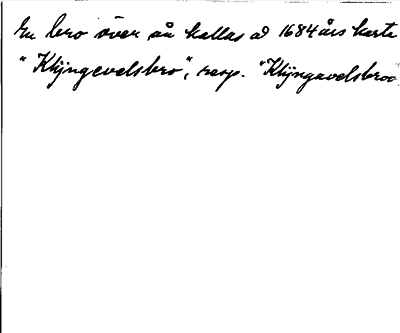 En bro över ån kallas å 1684 års karta
"Klijngevelsbro", resp. "Klijngavelsbroo